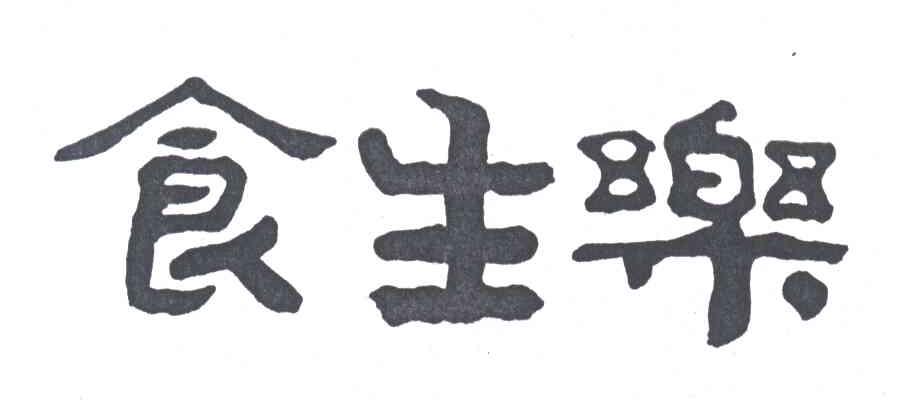 食生樂